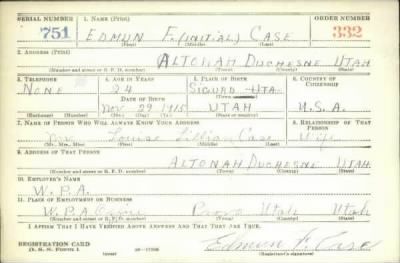 SERIAL NUMBER 1. NAME (Print) ORDER NUMBER
751 EDMUN F.(INITIAL) CASE 332
(First) (Middle) (Last)
2. ADDRESS (Print)
ALTONAH DUCHESNE UTAH
(Number and street or R. F. D. number) (Town) (County) (State)
3. TELEPHONE 4. AGE IN YEARS 5. PLACE OF BIRTH 6. COUNTRY OF CITIZENSHIP
NONE 24 SIGURD UTA.
DATE OF BIRTH (Town or county)
Nov. 22 1915 UTAH U.S.A.
(Exchange) (Number) (Mo.) (Day) (Yr.) (State or country)
7. NAME OF PERSON WHO WILL ALWAYS KNOW YOUR ADDRESS 8. RELATIONSHIP OF THAT PERSON
Louise Lillian Case Wife
(Mr., Mrs., Miss) (First) (Middle) (Last)
9. ADDRESS OF THAT PERSON
ALTONAH DUCHESNE UTAH
(Number and street or R. F. D. number) (Town) (County) (State)
10. EMPLOYER'S NAME
W.P.A.
11. PLACE OF EMPLOYMENT OR BUSINESS
W.P.A. Provo Utah Utah
(Number and street or R. F. D. number) (Town) (County) (State)
I AFFIRM THAT I HAVE VERIFIED ABOVE ANSWERS AND THAT THEY ARE TRUE.
REGISTRATION CARD Edmun F. Case
D. S. S. FORM 1 (Registrant's signature)